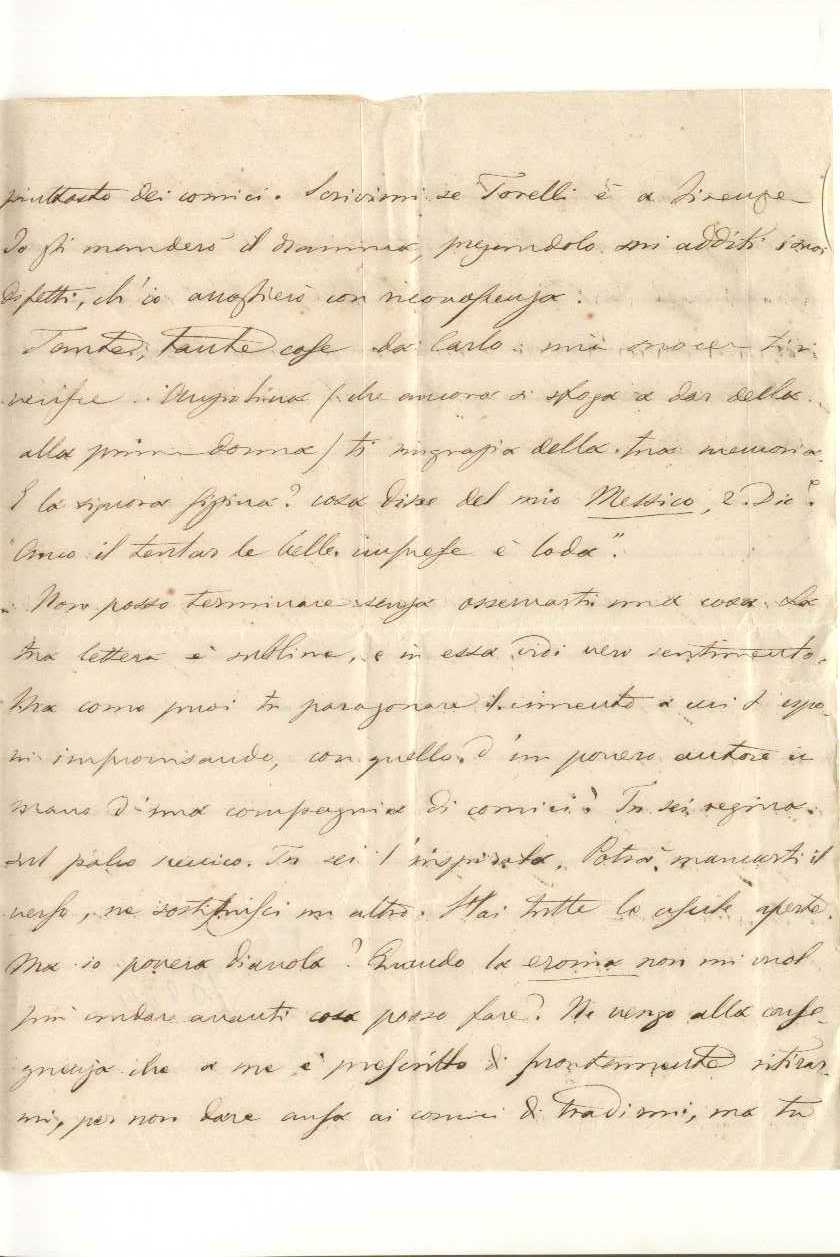 piuttosto dei comici. Scrivimi se Torelli è a Firenze
Io gli manderò il dramma, pregandolo mi additi i suoi
difetti, ch'io accoglierò con riconoscenza.
Tante, tante cose da Carlo. mia ti ri
verisce. (che ancora si sfoga a dar della
alla prima donna) ti ringrazia della tua memoria.
E la signora Gigina? cosa disse del mio Messico, 2. Dio?
"Anco il tentar le belle imprese è loda".
Non posso terminare senza osservarti una cosa. La
tua lettera è sublime, e in essa vidi vero sentimento.
Ma come puoi tu paragonare il cimento a cui t'espo-
ni improvisando, con quello d'un povero autore in
mano d'una compagnia di comici? Tu sei regina
sul palco scenico. Tu sei l'inspirata. Potrà mancarti il
verso, ne sostituisci un altro. Hai tutte le aperte.
Ma io povera diavola? Quando la eroina non mi vuol
più andare avanti cosa posso fare? Ne vengo alla conse-
guenza che a me è prescritto di prontamente ritirar-
mi, per non dare ansa ai comici di tradirmi, ma tu